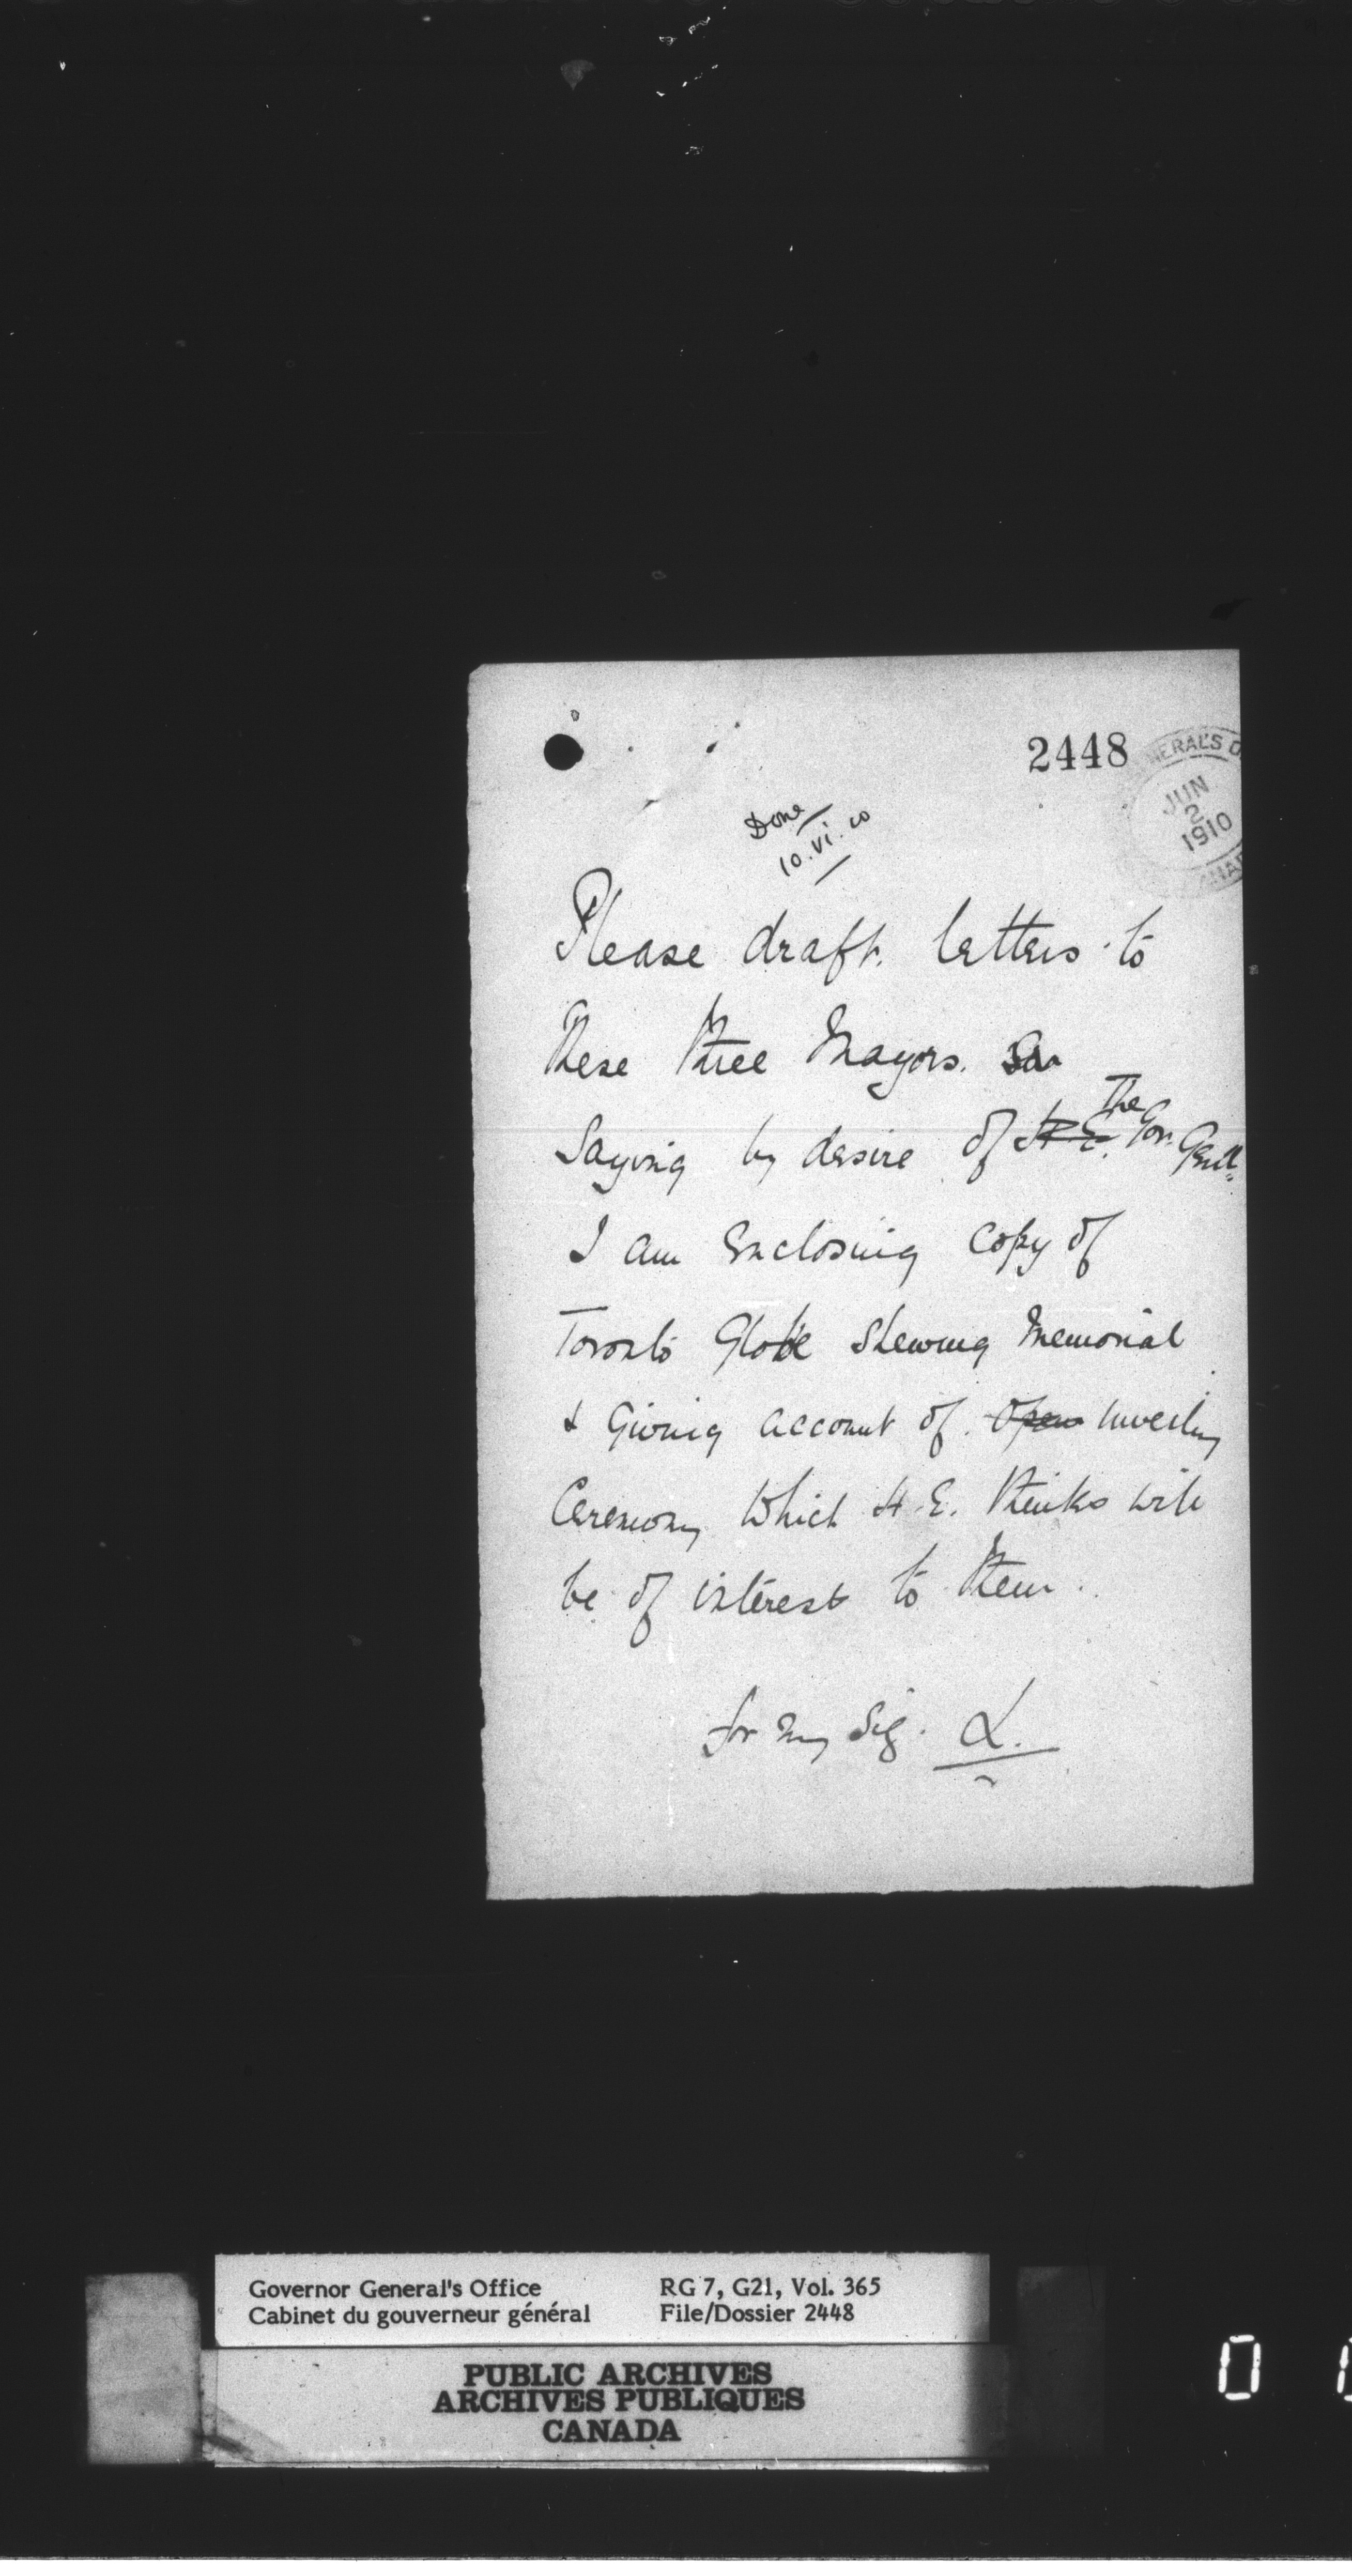 2448
NERAL'S O
JUN
2
1910
ANAD
Done
10.VI.10
Please draft letters to
these three Mayors. Sa
Saying by desire of H.E. The Gov. Genl.
I am enclosing copy of
Toronto Globe shewing Memorial
& giving account of open unveiling
Ceremony which H.E. thinks will
be of interest to them.
for my sig. L.
Governor General's Office
Cabinet du gouverneur général
RG 7, G21, Vol. 365
File/Dossier 2448
PUBLIC ARCHIVES
ARCHIVES PUBLIQUES
CANADA
0